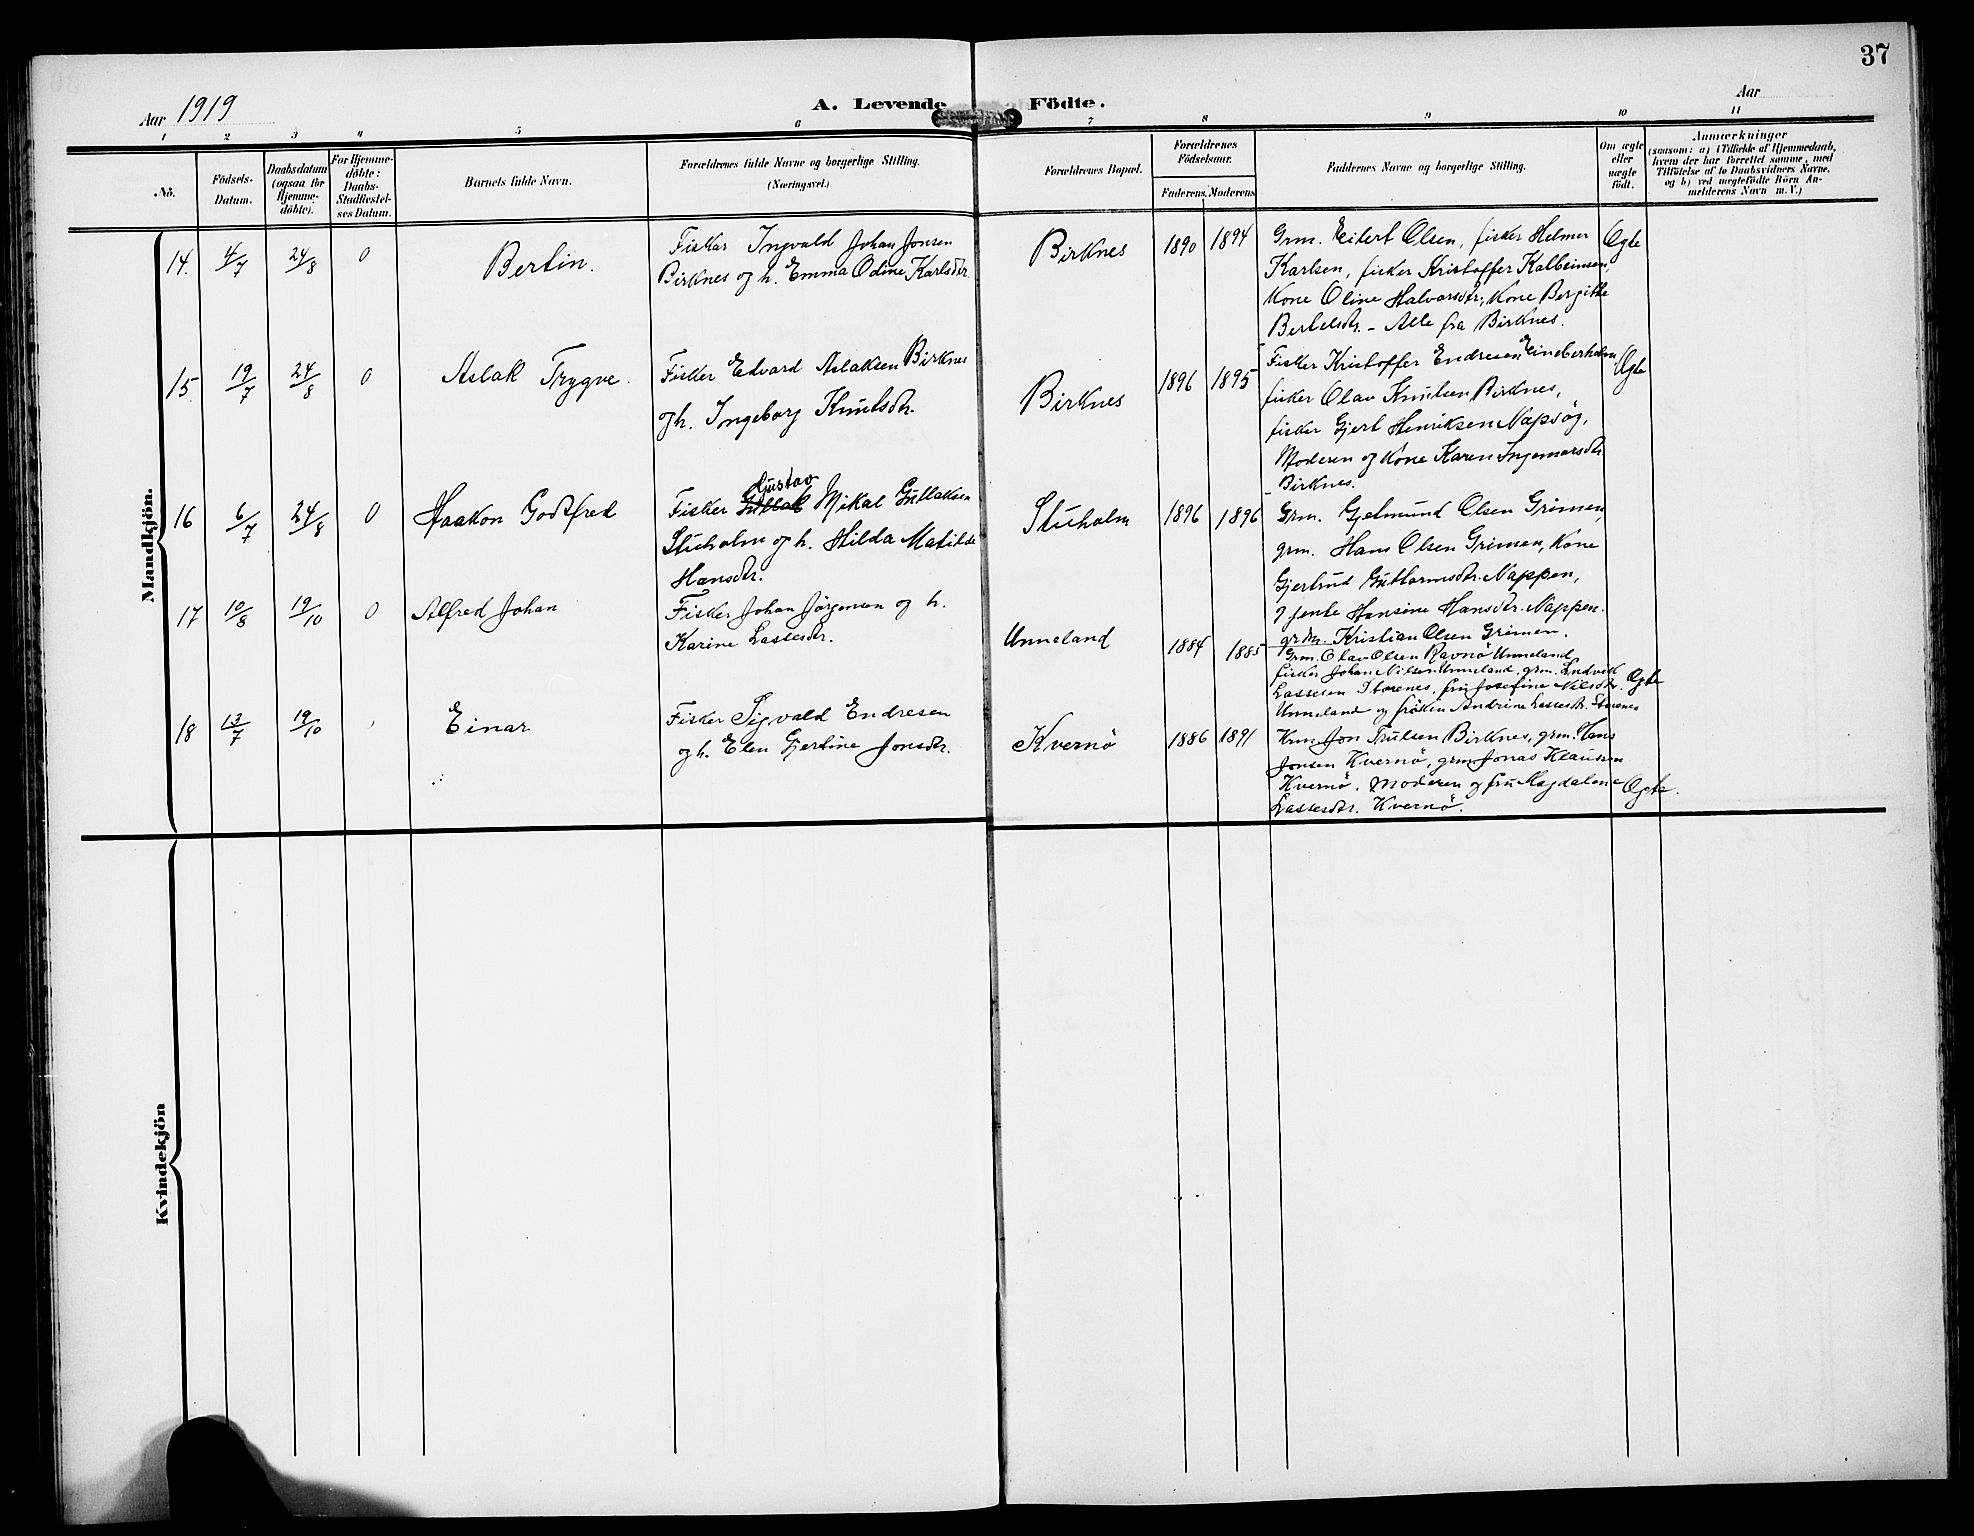 37
Aar 1919
A. Levende Födte.
Aar
1 2 3 4 5 6 7 8 9 10 11
No.
Födsels-
Datum.
Daabsdatum
(ogsaa for
Hjemme-
döbte).
For Hjemme-
döbte:
Daabs-
Stadfæstel-
ses Datum.
Barnets fulde Navn.
Forældrenes fulde Navne og borgerlige Stilling.
(Næringsvei.)
Forældrenes Bopæl.
Forældrenes
Födselsaar.
Faderens. Moderens.
Faddernes Navne og borgerlige Stilling.
Om ægte
eller
uægte
födt.
Anmærkninger
(saasom: a) i Tilfælde af Hjemmedaab,
hvem der har forrettet samme, med
Tilföielse af to Daabsvidners Navne,
og b) ved uægtefödte Börn An-
melderens Navn m. V.)
Mandkjön.
14. 4/7 24/8 0 Bertin.
Fisker Ingvald Johan Jonsen
Birknes og h. Emma Odine Karlsdtr.
Birknes 1890 1894
Grm. Eilert Olsen, fisker Helmer
Karlsen, fisker Kristoffer Kolbeinsen,
Kone Oline Halvorsdtr., Kone Bergitte
Bertelsdtr. - Alle fra Birknes.
Ægte
15 19/7 24/8 0 Aslak Trygve.
Fisker Edvard Aslaksen Birknes
og h. Ingeborg Knutsdtr.
Birknes 1896 1895
Fisker Kristoffer Endresen
fisker Olav Knutsen Birknes,
fisker Gjert Henriksen Napsög,
Moderen og Kone Karen Ingemarsdtr.
Birknes.
Ægte
16 6/7 24/8 0 Haakon Godtfred
Gustav
Fisker Gullak Mikal Gullaksen
Stuholm og h. Hilda Matilde
Hansdtr.
Stuholm 1896 1896
Grm. Gjetmund Olsen Grimen,
grm. Hans Olsen Grimen, Kone
Gjertrud Guttormsdtr. Nappen,
og jente Hansine Hansdtr. Nappen.
grdm. Kristian Olsen Grimen.
17 10/8 19/10 0 Alfred Johan
Fisker Johan Jörgensen og h.
Karine Lassesdtr.
Unneland 1884 1885
Grm. Olav Olsen Ravnö Unneland,
fisker Johan Nilsen Unneland, grm. Ludvik
Lassesen Storenes, fru Josefine Nilsdtr.
Unneland og fröken Andrine Lassesdtr. Storenes
Ægte
18 13/7 19/10 Einar
Fisker Sigvald Endresen
og h. Elen Gjertine Jonsdtr.
Kvernö 1886 1891
Krm. Jon Trulsen Birknes, grm. Hans
Jonsen Kvernö, grm. Jonas Klausen
Kvernö. Moderen og fru Magdalene
Lassesdtr. Kvernö.
Ægte.
Kvindekjön